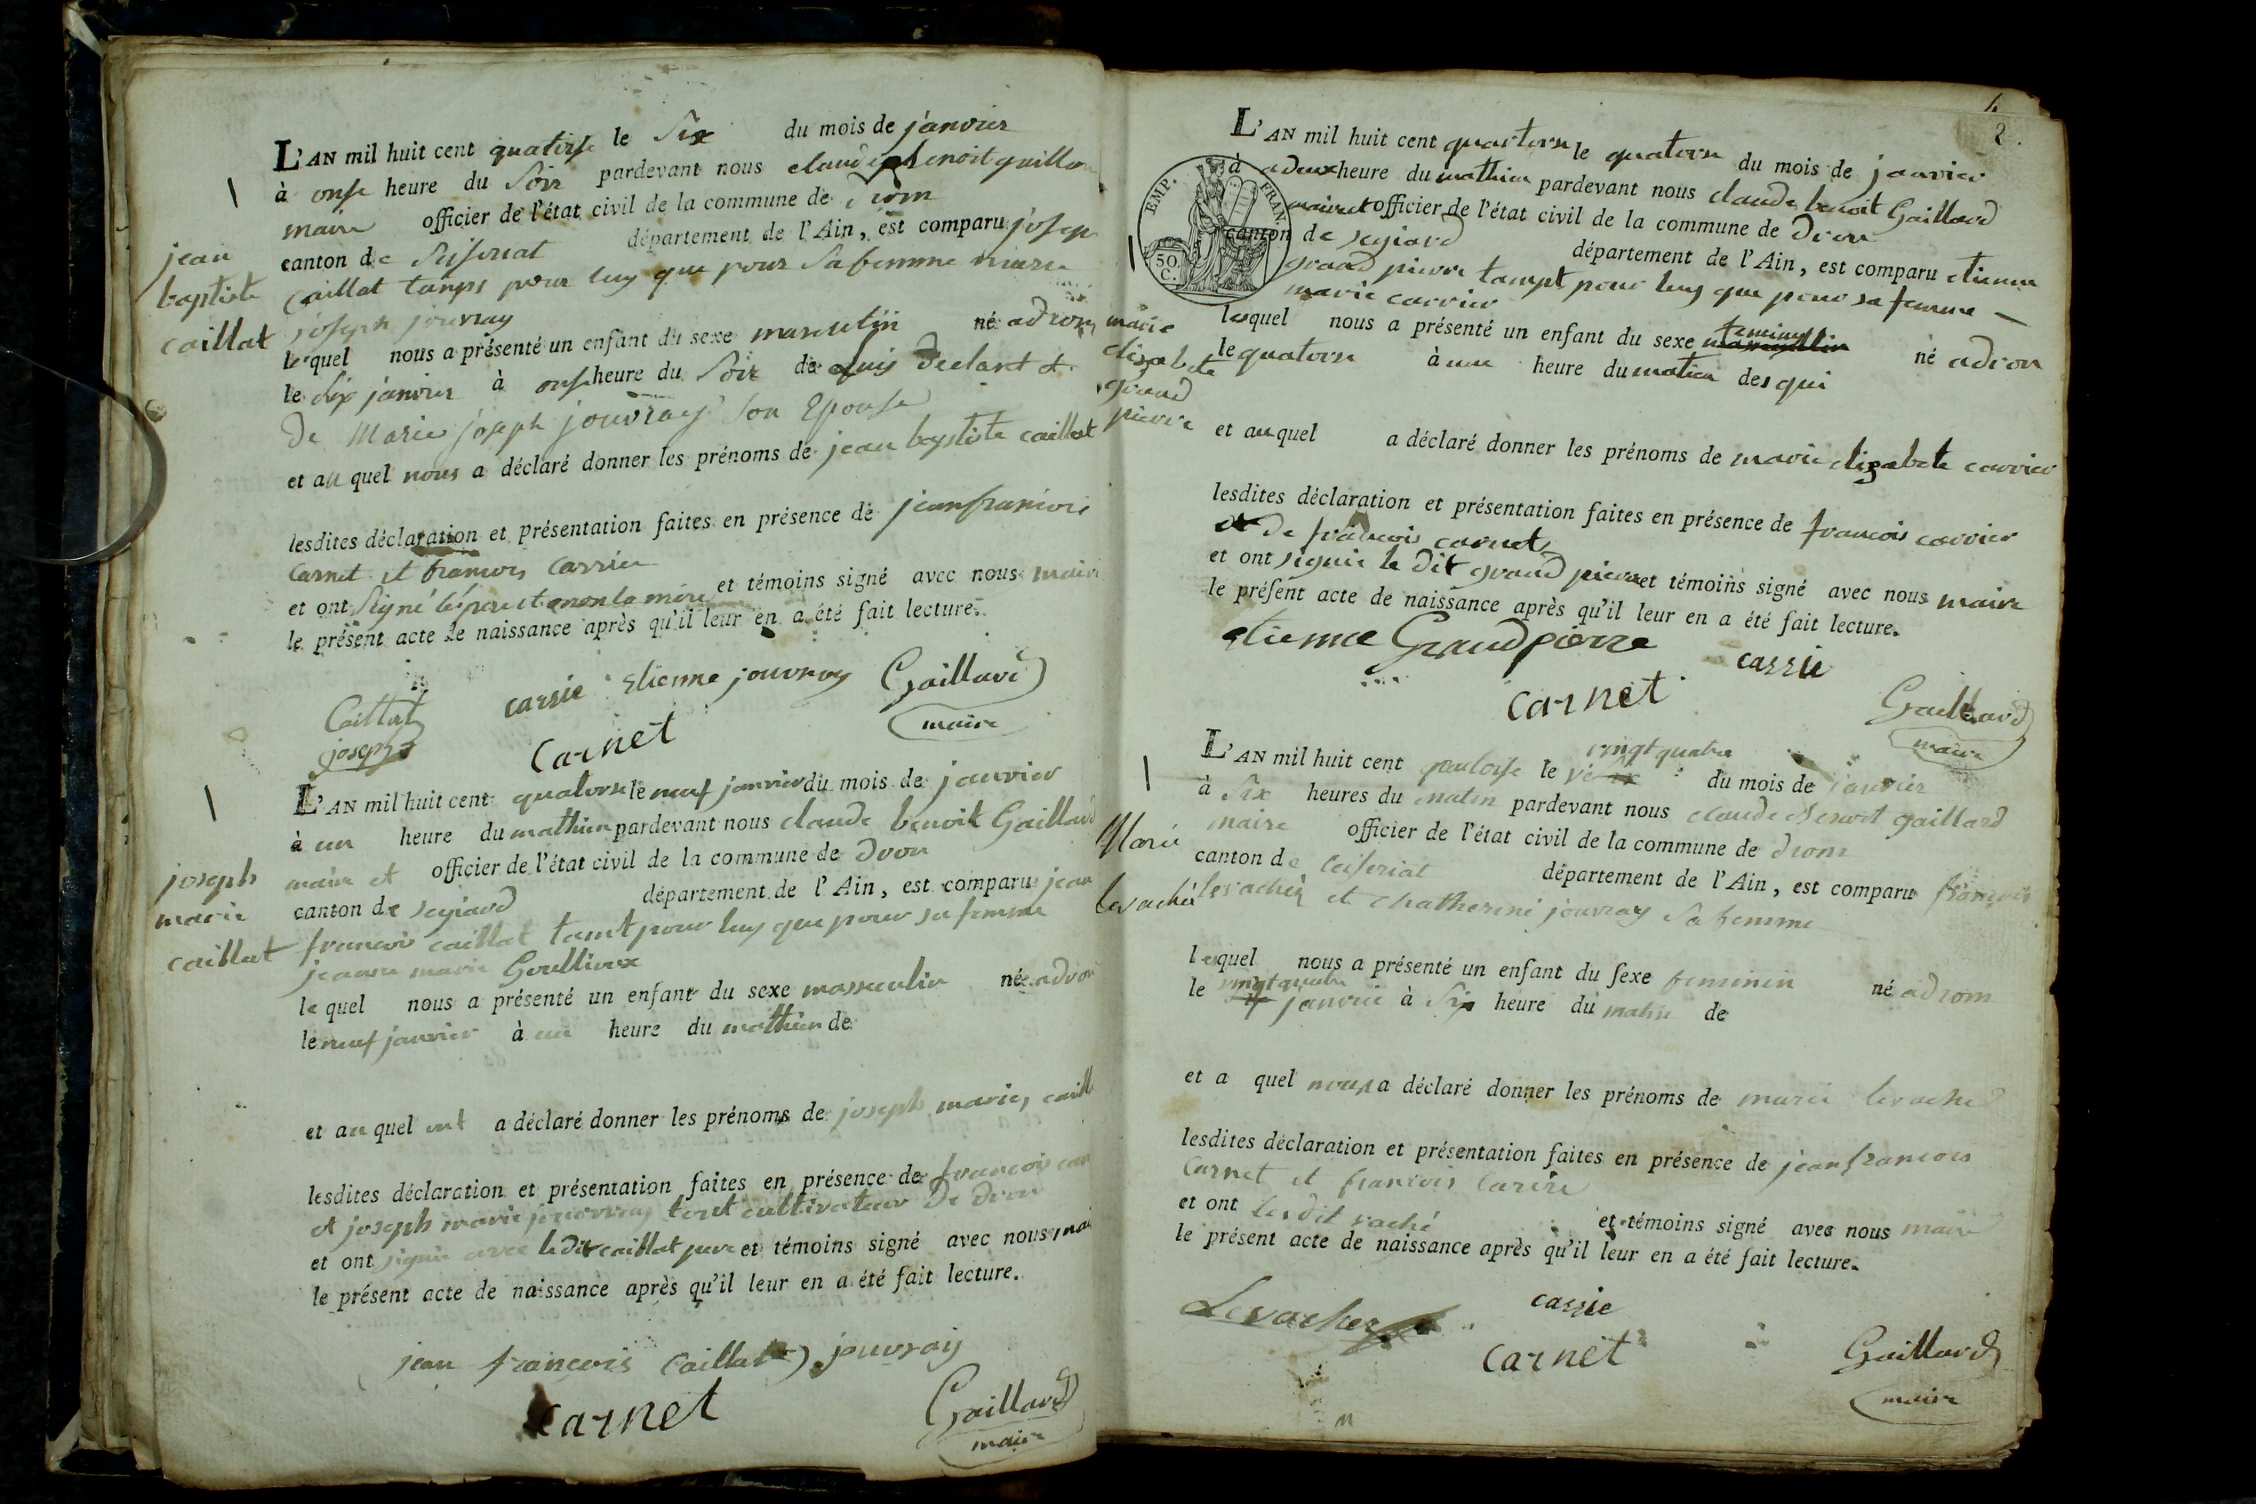 L'AN mil huit cent quatorse le Six du mois de janvier
à onse heure du Soir pardevant nous claude benoit gaillar
maire officier de l'état civil de la commune de Drom
canton de Seiseriat département de l'Ain, est comparu josep
Caillat tamps pour luy que pour Sa femme marie
joseph jouvray
lequel nous a présenté un enfant du sexe masculin né adrom
le Six janvier à onse heure du Soir de luy declarant et
De Marie joseph jouvray Son Epouse
et au quel nous a déclaré donner les prénoms de jean baptiste caillat
lesdites déclaration et présentation faites en présence de jean francois
Carnet et francois Carrier
et ont Signé le pere et non la mere et témoins signé avec nous maire
le présent acte de naissance après qu'il leur en a été fait lecture.
jean
baptiste
caillat
Caillat
joseph
carrie Etienne jouvray Gaillard
Carnet
maire
L'AN mil huit cent quatorse le neuf janvier du mois de janvier
à un heure du mathin pardevant nous claude benoit Gaillard
maire et officier de l'état civil de la commune de dron
canton de seyiard département de l'Ain, est comparu jean
francois caillat tamt pour luy que pour sa femme
jeanne marie
lequel nous a présenté un enfant du sexe massculin né adron
le neuf janvier à un heure du mathin de
et au quel ont a déclaré donner les prénoms de joseph marie, caill
lesdites déclaration et présentation faites en présence de francois car
et joseph marie tout cultivateur De dron
et ont signié avec le Dit caillat pere et témoins signé avec nous mai
le présent acte de naissance après qu'il leur en a été fait lecture.
joseph
marie
caillat
jean francois Caillat jouvray
carnet
Gaillard
maire
4
2.
EMP. FRAN.
50
C.
L'AN mil huit cent quartorse le quatorse du mois de janvier
à adeux heure du mathin pardevant nous claude benoit Gaillard
maire et officier de l'état civil de la commune de dron
canton de seyiard département de l'Ain, est comparu etienne
grand pierre tampt pour luy que pour sa femme
marie carrier
lesquel nous a présenté un enfant du sexe feminin né adron
le quatorse à une heure du matin des qui
et au quel a déclaré donner les prénoms de marie elizabete carrier
lesdites déclaration et présentation faites en présence de francois carrier
et de francois carnet
et ont signié le Dit grand pierre et témoins signé avec nous maire
le présent acte de naissance après qu'il leur en a été fait lecture.
marie
elizabete
grand
pierre
etienne Grandpierre
carrie
carnet
Gaillard
maire
L'AN mil huit cent quatorse le vingt quatre du mois de janvier
à Six heures du matin pardevant nous claude Benoit gaillard
maire officier de l'état civil de la commune de drom
canton de Ceiseriat département de l'Ain, est comparu francois
levacher et Chatherine jouvray Sa femme
lequel nous a présenté un enfant du sexe feminin né adrom
le vingt quatre janvrie à Six heure du matin de
et a quel nous a déclaré donner les prénoms de marie levache
lesdites déclaration et présentation faites en présence de jean francois
Carnet et francois Carrie
et ont Ledit vaché et témoins signé avec nous maire
le présent acte de naissance après qu'il leur en a été fait lecture.
Marie
levaché
Levacher
carrie
Carnet
Gaillard
maire